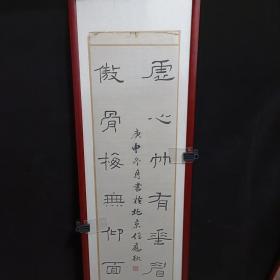 虛心竹有垂
庚申冬月書於北京
傲骨梅無仰面